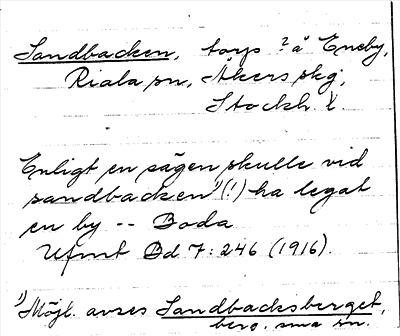 Sandbacken, torp ? å Eneby,
Riala sn, Åkers skg,
Stockh. l.
Enligt en sägen skulle vid
sandbacken¹) (!) ha legat
en by -- Boda
Ufmt Bd 7:246 (1916).
¹) Möjl. avses Sandbacksberget,
berg, sma sn.